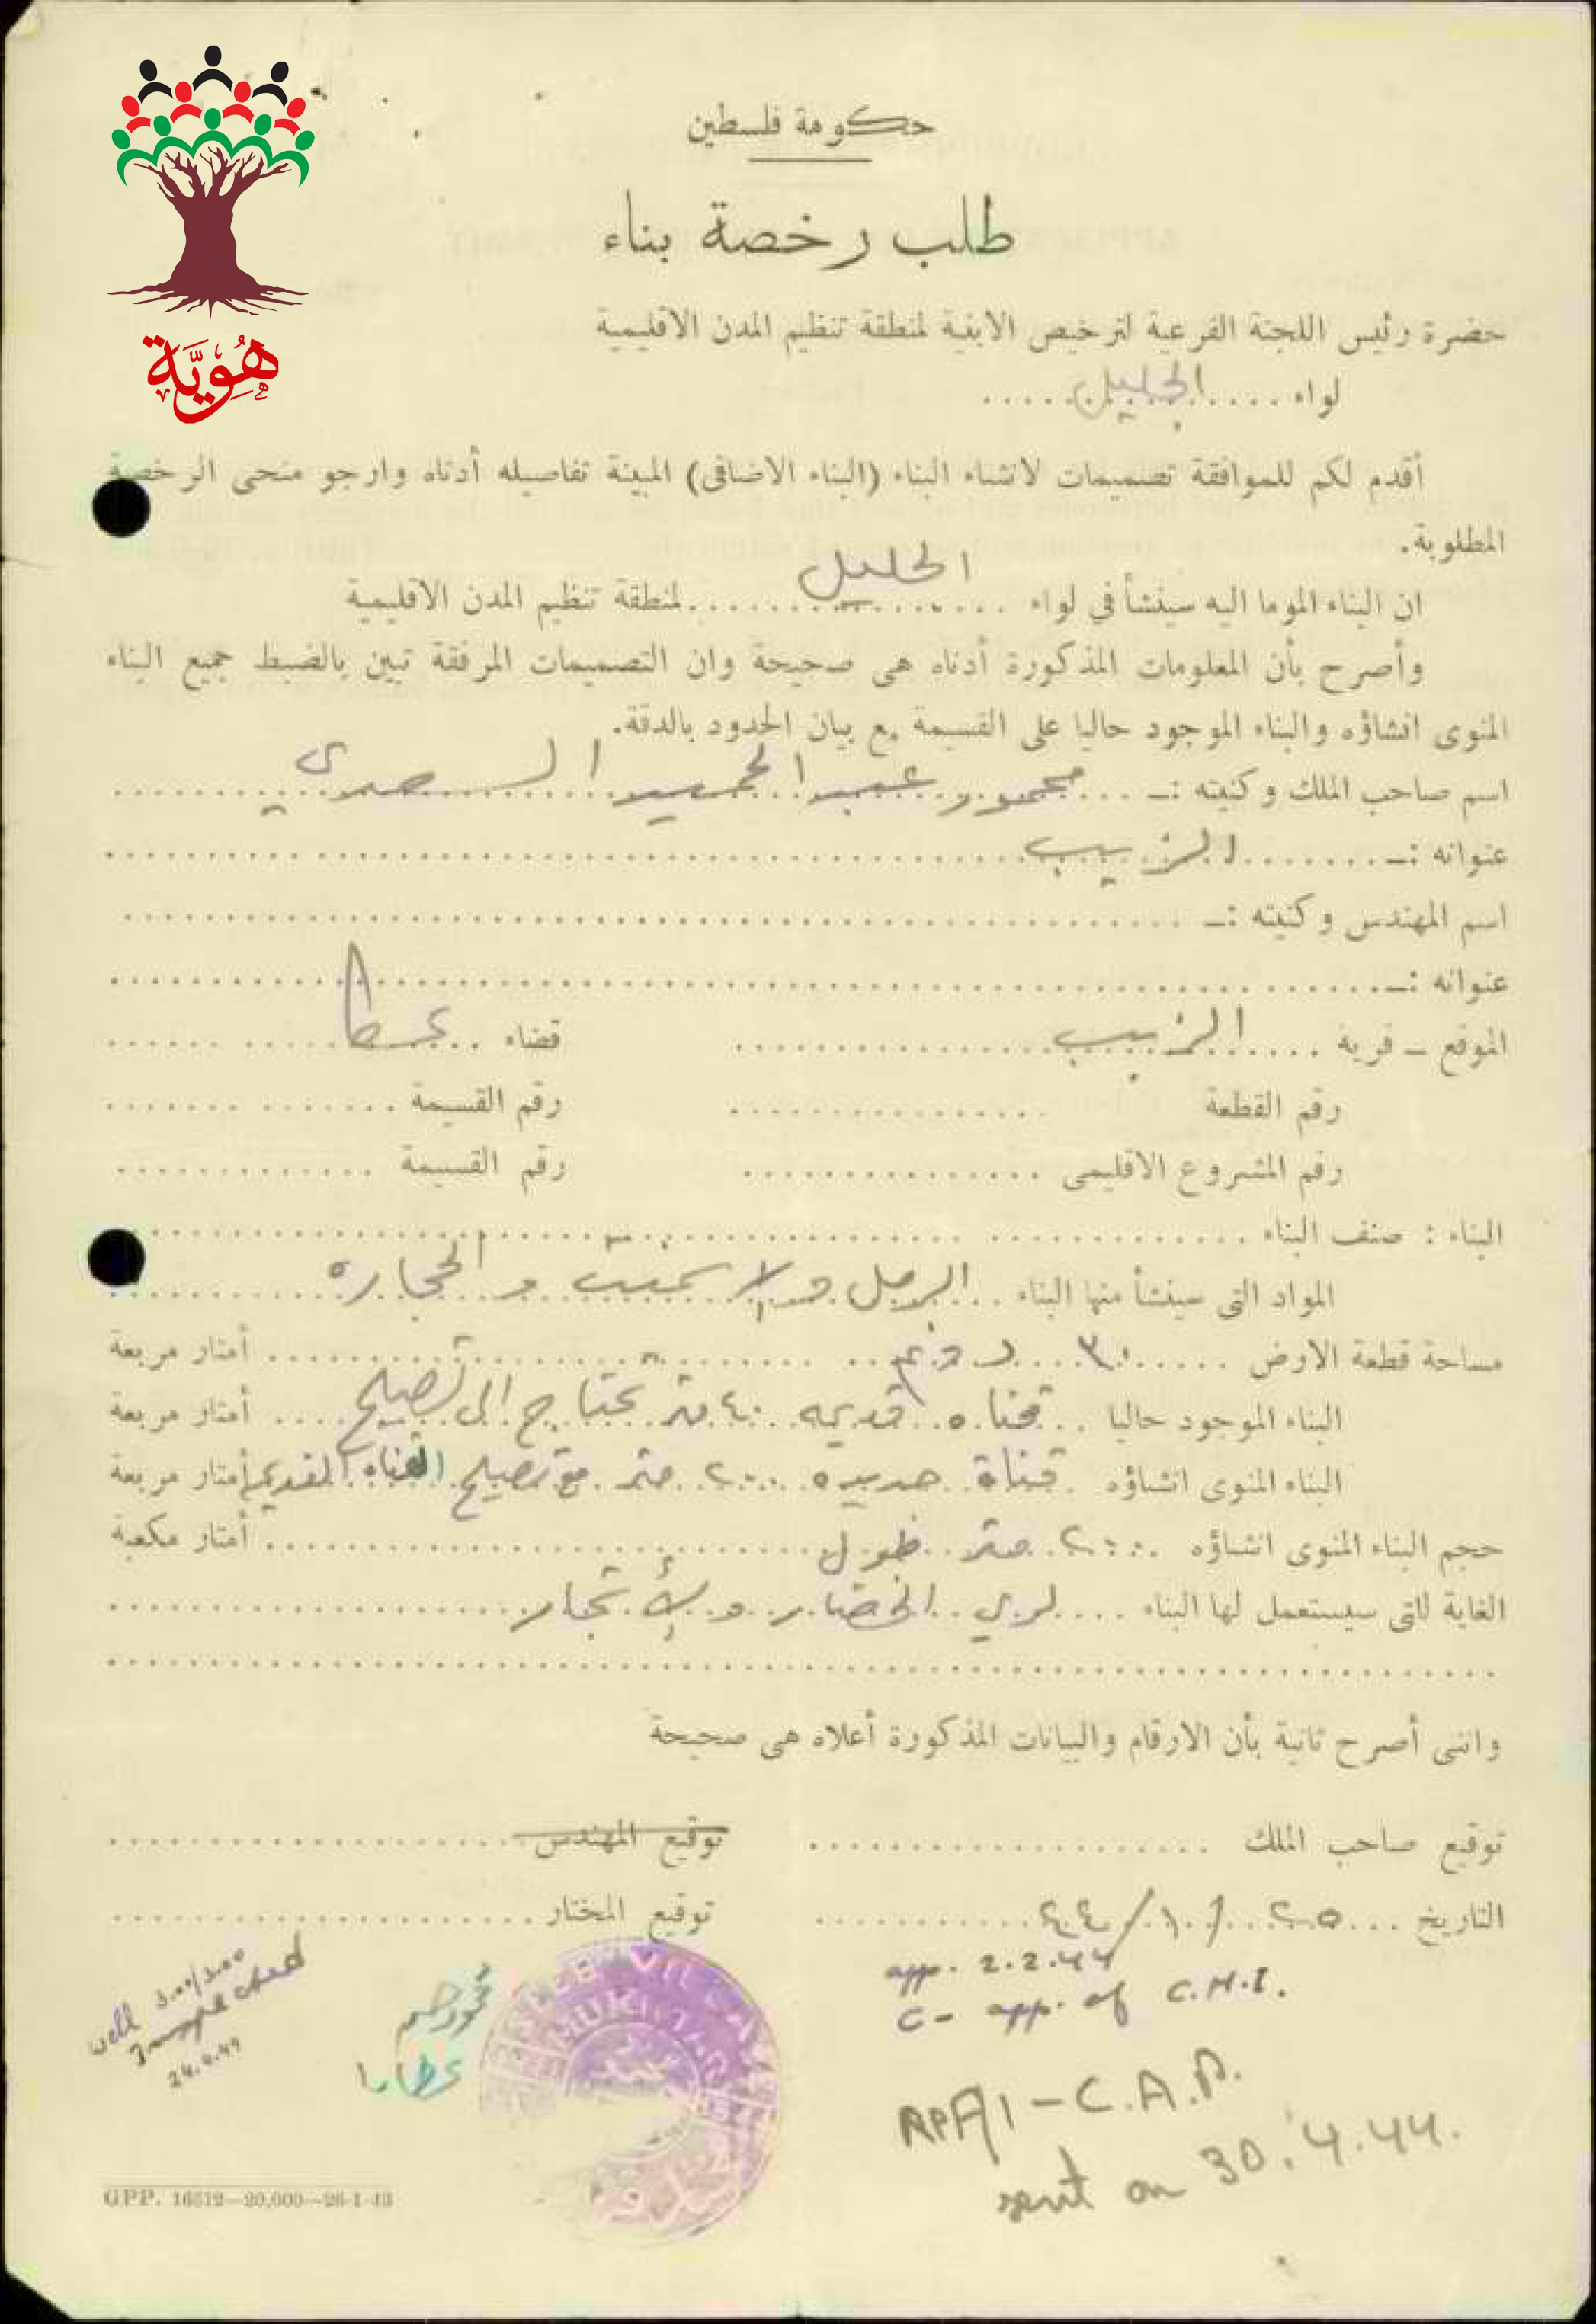 هُويَّة
حكومة فلسطين
طلب رخصة بناء
حضرة رئيس اللجنة الفرعية لترخيص الابنية لمنطقة تنظيم المدن الاقليمية
لواء .... الجليل .....
أقدم لكم للموافقة تصميمات لانشاء البناء (البناء الاضافى) المبينة تفاصيله أدناه وارجو منحى الرخصة
المطلوبة.
ان البناء الموما اليه سينشأ في لواء ... الجليل ... لمنطقة تنظيم المدن الاقليمية
وأصرح بأن المعلومات المذكورة أدناه هى صحيحة وان التصميمات المرفقة تبين بالضبط جميع البناء
المنوى انشاؤه والبناء الموجود حاليا على القسيمة مع بيان الحدود بالدقة.
اسم صاحب الملك وكنيته :ـ ... محمود عبد الحميد السعدي
عنوانه :ـ ....... الزيب
اسم المهندس وكنيته :ـ
عنوانه :ـ
الموقع ـ قرية .... الزيب ... قضاء .. عكا
رقم القطعة ... رقم القسيمة
رقم المشروع الاقليمى ... رقم القسيمة
البناء : صنف البناء
المواد التى سينشأ منها البناء .. الرمل والاسمنت والحجاره
مساحة قطعة الارض ...... ٣٠ دونم ... أمتار مربعة
البناء الموجود حاليا .. قناه قديمه ٤٠٠ متر يحتاج الى تصليح .... أمتار مربعة
البناء المنوى انشاؤه . قناة جديده ٢٠٠٠ متر مع تصليح القناه القديم أمتار مربعة
حجم البناء المنوى انشاؤه ٢٠٠٠ متر طول ... أمتار مكعبة
الغاية للتى سيستعمل لها البناء .... لري الخضار والأشجار
واننى أصرح ثانية بأن الارقام والبيانات المذكورة أعلاه هى صحيحة
توقيع صاحب الملك ... توقيع المهندس
التاريخ ... ٢٥/١/٤٤ ... توقيع المختار
app. 2.2.44
C- app. of C.M.I.
RPA/1 - C.A.P.
sent on 30.4.44.
well 300/300
24.4.44
محمود
عطايا
MUKHTAR
GPP. 16512—20,000—26-1-43